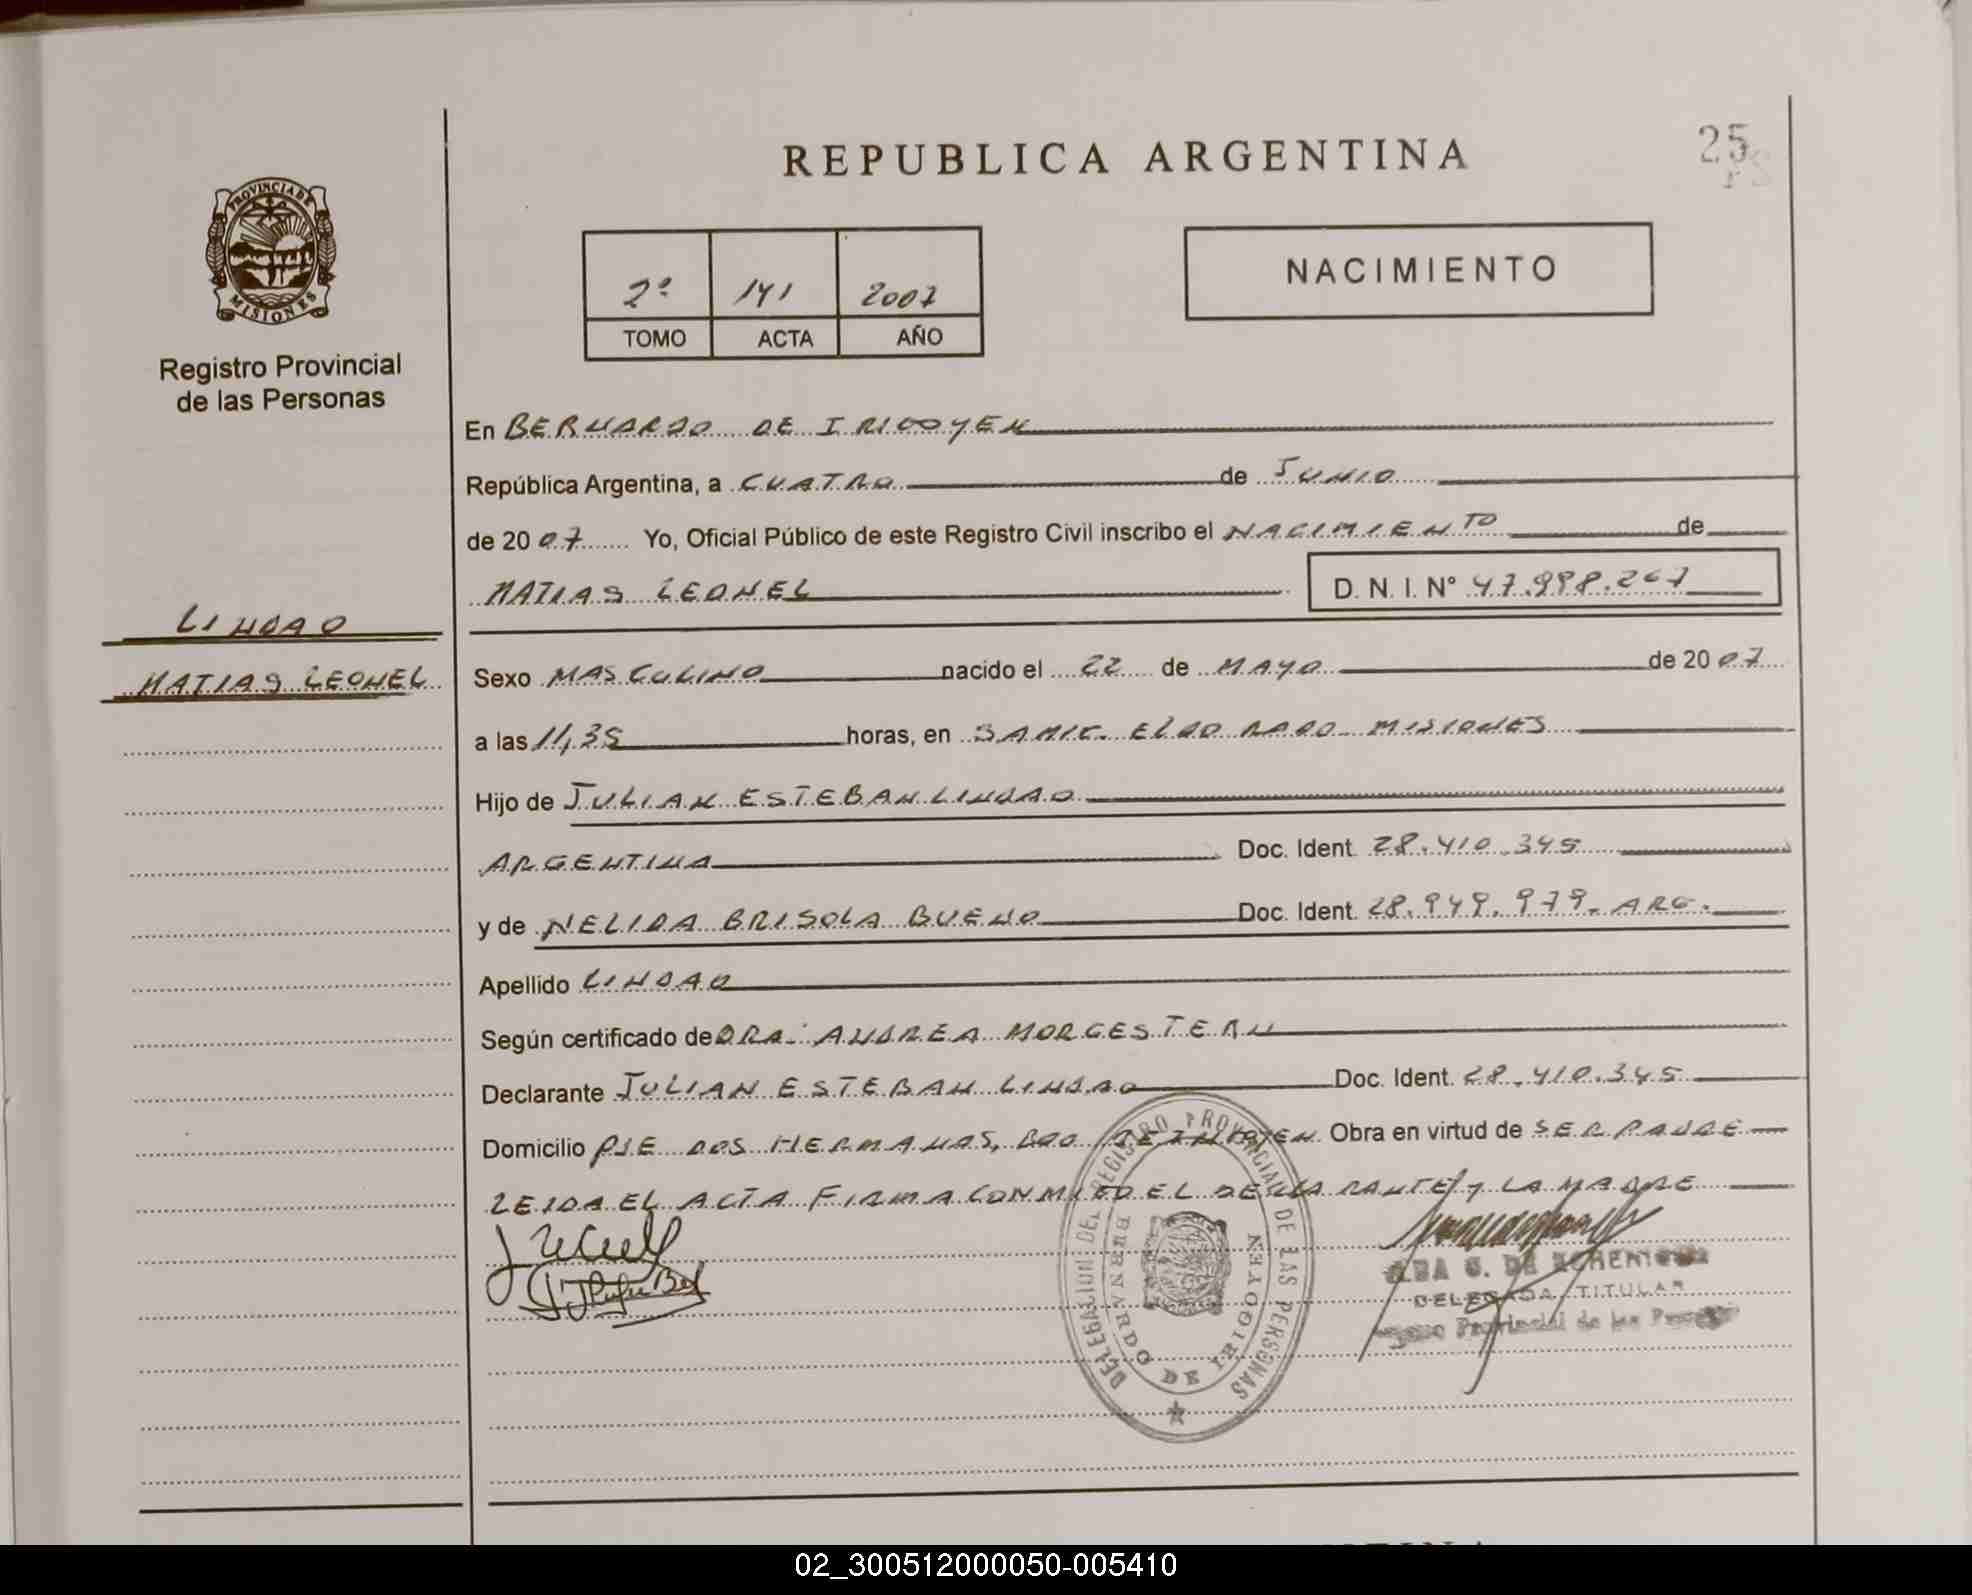 REPUBLICA ARGENTINA
25
PROVINCIA DE
MISIONES
Registro Provincial
de las Personas
2º 141 2007
TOMO ACTA AÑO
NACIMIENTO
En BERNARDO DE IRIGOYEN
República Argentina, a CUATRO de JUNIO
de 2007 Yo, Oficial Público de este Registro Civil inscribo el NACIMIENTO de
MATIAS LEONEL D. N. I. Nº 47.998.267
LINDAO
MATIAS LEONEL
Sexo MASCULINO nacido el 22 de MAYO de 2007
a las 11,35 horas, en SAMIC. ELDORADO MISIONES
Hijo de JULIAN ESTEBAN LINDAO
ARGENTINA Doc. Ident. 28.410.345
y de NELIDA BRISOLA BUENO Doc. Ident. 28.949.979. ARG.
Apellido LINDAO
Según certificado de DRA. ANDREA MORGESTERN
Declarante JULIAN ESTEBAN LINDAO Doc. Ident. 28.410.345
Domicilio PJE DOS HERMANAS, BDO DE IRIGOYEN Obra en virtud de SER PADRE
LEIDA EL ACTA FIRMA CONMIGO EL DECLARANTE Y LA MADRE
DELEGACION DEL REGISTRO PROVINCIAL DE LAS PERSONAS
BERNARDO DE IRIGOYEN
DELEGADA TITULAR
Provincial de las
02_300512000050-005410